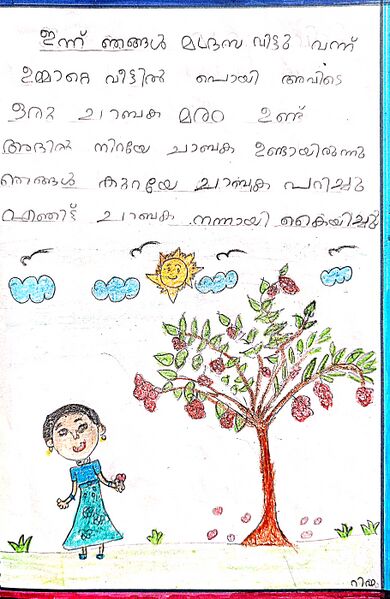 ഇന്ന് ഞങ്ങൾ മദ്രസ വിട്ടു വന്ന്
ഉമ്മാറെ വീട്ടിൽ പൊയി അവിടെ
ഒരു ചാബക മരം ഉണ്ട്
അതിൽ നിറയേ ചാബക ഉണ്ടായിരുന്നു
ഞങ്ങൾ കുറയേ ചാമ്പക പറിച്ചു
എന്നിട്ട് ചാബക നന്നായി കൈയിച്ചു
റിഫ